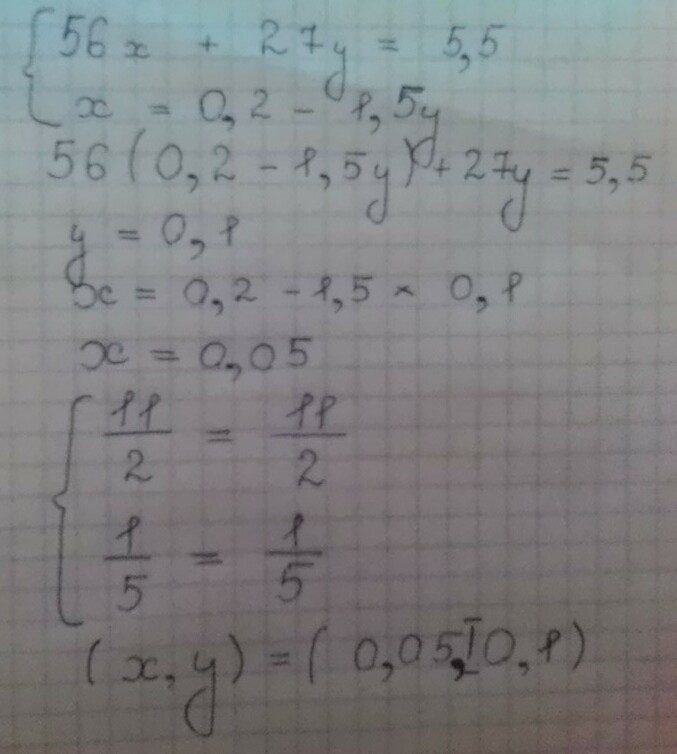 56x + 27y = 5,5
x = 0,2 - 1,5y
56(0,2 - 1,5y) + 27y = 5,5
y = 0,1
x = 0,2 - 1,5 × 0,1
x = 0,05
11/2 = 11/2
1/5 = 1/5
(x, y) = (0,05, 0,1)